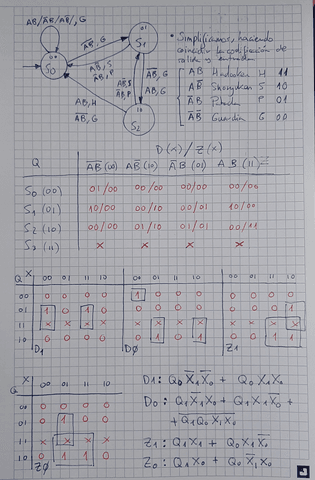 AB/AB̅/A̅B/, G
S0
01
S1
A̅B̅, G
A̅B̅, S
A̅B, P
A̅B̅, G
AB, G
AB, H
A̅B̅, G
10
S2
• Simplificamos, haciendo
coincidir la codificación de
salida y entrada
AB Hadouken H 11
AB̅ Shoryuken S 10
A̅B Patada P 01
A̅B̅ Guardia G 00
D(x) / Z(x)
Q A̅B̅(00) AB̅(10) A̅B(01) AB(11)
S0 (00) 01/00 00/00 00/00 00/00
S1 (01) 10/00 00/10 00/01 10/00
S2 (10) 00/00 01/10 01/01 00/11
S3 (11) x x x x
Q X 00 01 11 10
00 01 11 10
00 01 11 10
00 0 0 0 0
1 0 0 0
0 0 0 0
01 1 0 1 0
0 0 0 0
0 0 0 1
11
10 0 0 0 0
D1
D0
Z1
Q X 00 01 11 10
00 0 0 0 0
01 0 1 0 0
11 x x x x
10 0 1 1 0
Z0
D1: Q0 X̅1 X̅0 + Q0 X1 X0
D0: Q1 X̅1 X0 + Q1 X1 X̅0 +
+ Q̅1 Q̅0 X̅1 X̅0
Z1: Q1 X1 + Q0 X1 X̅0
Z0: Q1 X0 + Q0 X̅1 X0